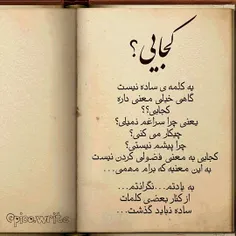 کجایی؟
یه کلمه ی ساده نیست
گاهی خیلی معنی داره
کجایی؟؟
یعنی چرا سراغم نمیای؟
چیکار می کنی؟
چرا پیشم نیستی؟
کجایی به معنی فضولی کردن نیست
به این معنیه که برام مهمی...
به یادتم...نگرانتم...
از کنار بعضی کلمات
ساده نباید گذشت...